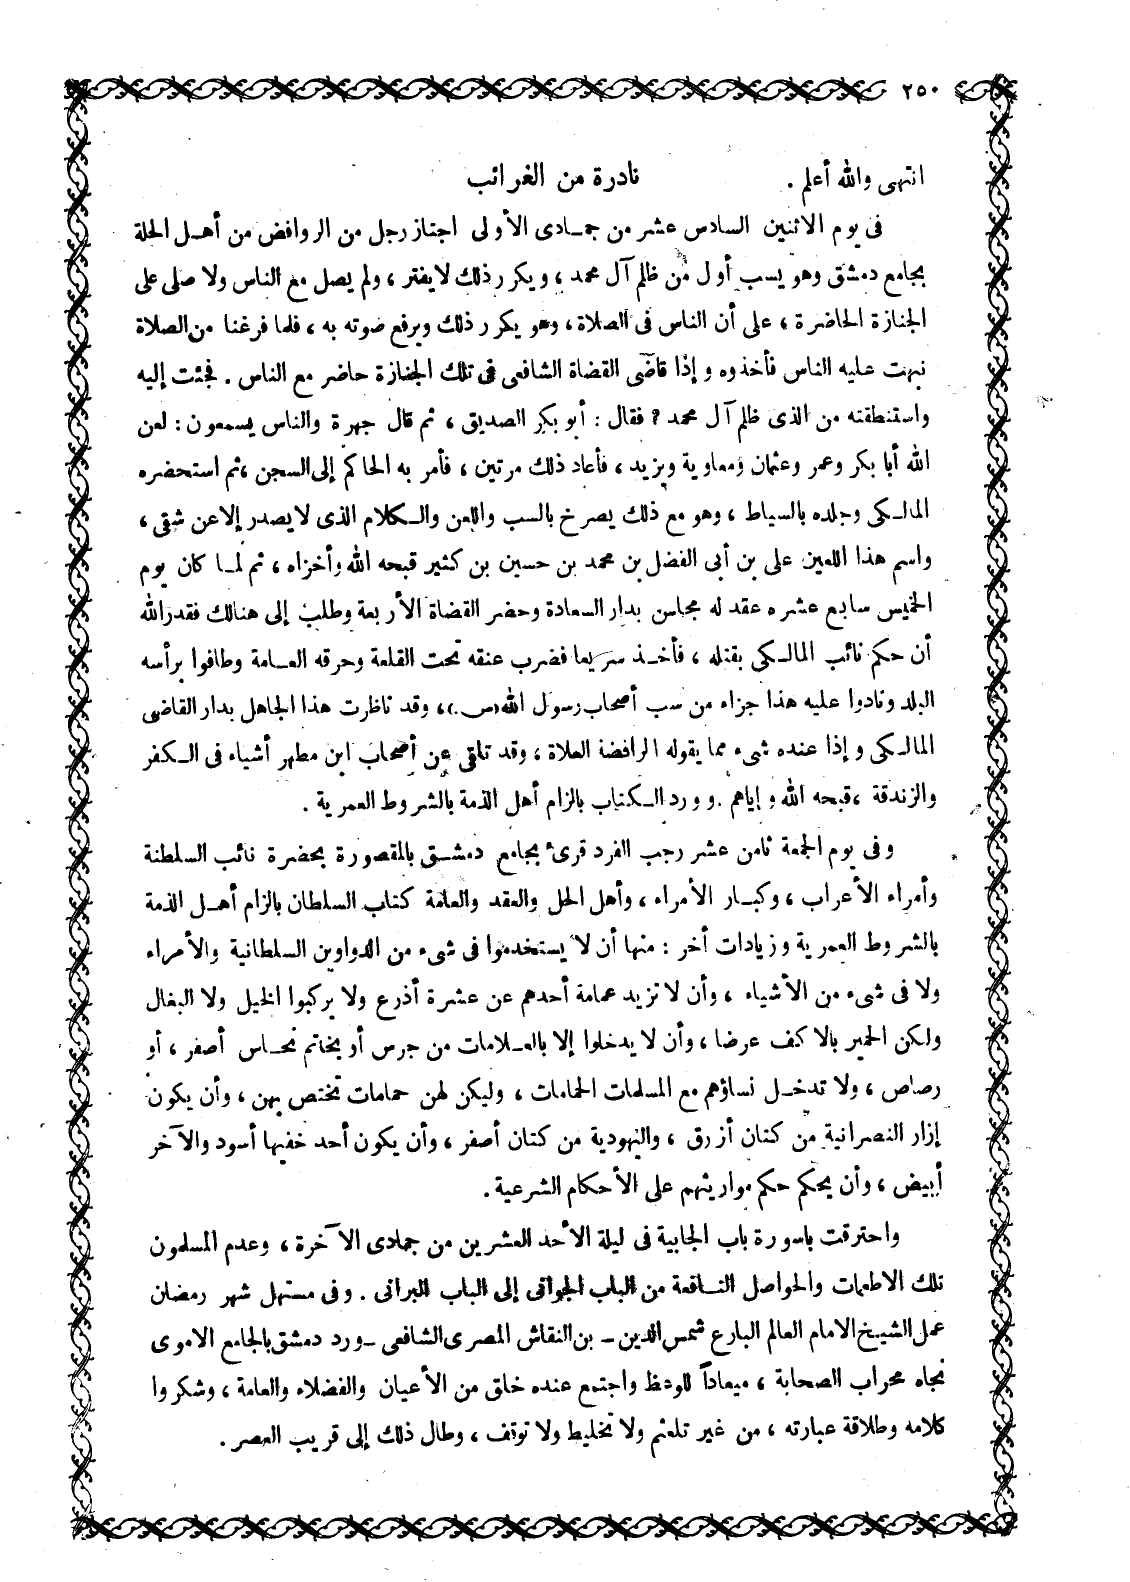 ٢٥٠
انتهى والله أعلم . نادرة من الغرائب
فى يوم الاثنين السادس عشر من جمادى الأولى اجتاز رجل من الروافض من أهل الحلة
بجامع دمشق وهو يسب أول من ظلم آل محمد ، ويكرر ذلك لا يفتر ، ولم يصل مع الناس ولا صلى على
الجنازة الحاضرة ، على أن الناس فى الصلاة ، وهو يكرر ذلك ويرفع صوته به ، فلما فرغنا من الصلاة
نبهت عليه الناس فأخذوه وإذا قاضى القضاة الشافعى فى تلك الجنازة حاضر مع الناس . فجئت إليه
واستنطقته من الذى ظلم آل محمد ؟ فقال : أبو بكر الصديق ، ثم قال جهرة والناس يسمعون : لعن
الله أبا بكر وعمر وعثمان ومعاوية ويزيد ، فأعاد ذلك مرتين ، فأمر به الحاكم إلى السجن ، ثم استحضره
المالكى وجلده بالسياط ، وهو مع ذلك يصرخ بالسب واللعن والكلام الذى لا يصدر إلا عن شقى ،
واسم هذا اللعين على بن أبى الفضل بن محمد بن حسين بن كثير قبحه الله وأخزاه ، ثم لما كان يوم
الخميس سابع عشره عقد له مجلس بدار السعادة وحضر القضاة الأربعة وطلب إلى هنالك فقدر الله
أن حكم نائب المالكى بقتله ، فأخذ سريعا فضرب عنقه تحت القلعة وحرقه العامة وطافوا برأسه
البلد ونادوا عليه هذا جزاء من سب أصحاب رسول الله (س.) ، وقد ناظرت هذا الجاهل بدار القاضى
المالكى وإذا عنده شىء مما يقوله الرافضة الغلاة ، وقد تلقى عن أصحاب ابن مطهر أشياء فى الكفر
والزندقة ، قبحه الله وإياهم . وورد الكتاب بالزام أهل الذمة بالشروط العمرية .
وفى يوم الجمعة ثامن عشر رجب الفرد قرئ بجامع دمشق بالمقصورة بحضرة نائب السلطنة
وأمراء الأعراب ، وكبار الأمراء ، وأهل الحل والعقد والعامة كتاب السلطان بالزام أهل الذمة
بالشروط العمرية وزيادات أخر : منها أن لا يستخدموا فى شىء من الدواوين السلطانية والأمراء
ولا فى شىء من الأشياء ، وأن لا تزيد عمامة أحدهم عن عشرة أذرع ولا يركبوا الخيل ولا البغال
ولكن الحمير بالاكف عرضا ، وأن لا يدخلوا إلا بالعلامات من جرس أو بخاتم نحاس أصفر ، أو
رصاص ، ولا تدخل نساؤهم مع المسلمات الحمامات ، وليكن لهن حمامات تختص بهن ، وأن يكون
إزار النصرانية من كتان أزرق ، واليهودية من كتان أصفر ، وأن يكون أحد خفيها أسود والآخر
أبيض ، وأن يحكم حكم مواريثهم على الأحكام الشرعية .
واحترقت باسورة باب الجابية فى ليلة الأحد العشرين من جمادى الآخرة ، وعدم المسلمون
تلك الاطعمات والحواصل النافعة من الباب الجوانى إلى الباب البرانى . وفى مستهل شهر رمضان
عمل الشيخ الامام العالم البارع شمس الدين ـ بن النقاش المصرى الشافعى ـ ورد دمشق بالجامع الاموى
تجاه محراب الصحابة ، ميعاداً للوعظ واجتمع عنده خلق من الأعيان والفضلاء والعامة ، وشكروا
كلامه وطلاقة عبارته ، من غير تلعثم ولا تخليط ولا توقف ، وطال ذلك إلى قريب العصر .